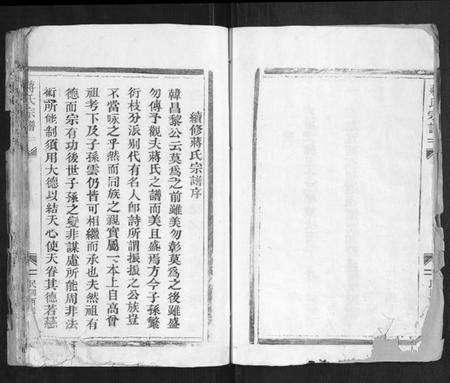 續修蔣氏宗譜序
韓昌黎公云莫為之前雖美勿彰莫為之後雖盛
勿傳予觀夫蔣氏之譜而美且盛焉方今子孫繁
衍枝分派別代有名人郎詩所謂振振之公族豈
不當咏之乎然而同族之親實屬一本上自高曾
祖考下及子孫雲仍皆可相繼而承也夫然祖有
德而宗有功後世子孫之變非謀處所能周非法
術所能制須用大德以結天心使天眷其德若慈
蔣氏宗譜